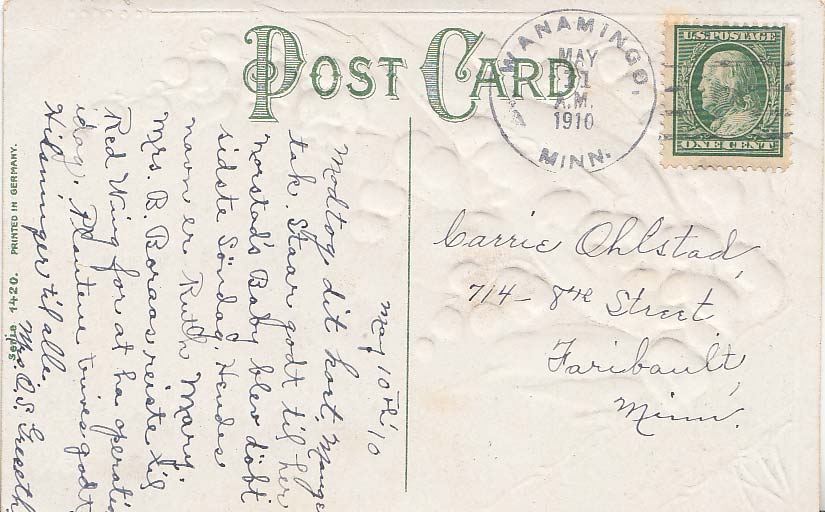 POST CARD
WANAMINGO,
MAY
11
A.M.
1910
MINN.
U.S. POSTAGE
ONE CENT
May 10th '10
Modtog dit kort. Mange
tak. Staar godt til her
Norstad's Baby blev döbt
sidste Söndag. Hendes
navn er Ruth Mary.
Mrs. B. Boraas reiste til
Red Wing for at ha operati
idag. Plantene trives godt
Hilsninger til alle.
Mrs. O. S. Greseth
Carrie Ohlstad,
714 - 8th Street
Faribault,
Minn.
Serie 1420. PRINTED IN GERMANY.